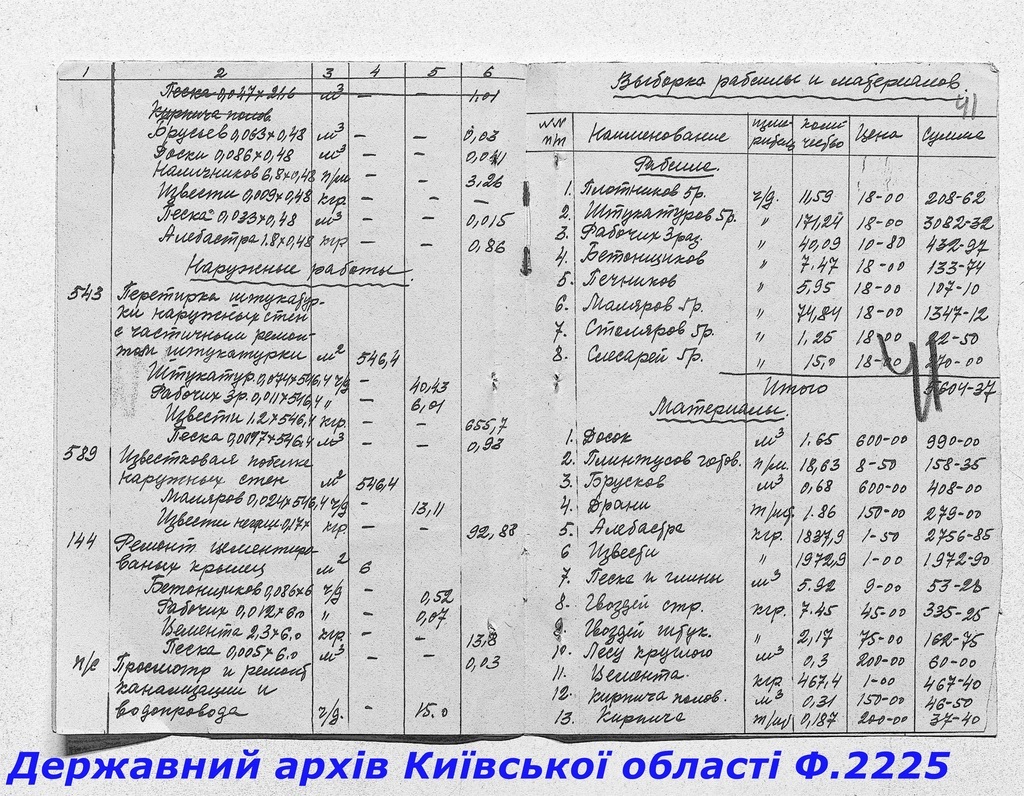 1 2 3 4 5 6
Песка 0,047×21.6 м³ 1,01
Кирпича полов
Брусьев 0,063×0,48 м³ – – 0,03
Доски 0,086×0,48 м³ – – 0,041
Наличников 6,8×0,48 п/м. – – 3,26
Извести 0,009×0,48 кгр. – – –
Песка 0,033×0,48 м³ – – 0,015
Алебастра 1.8×0,48 кгр – – 0,86
Наружные работы.
543 Перетирка штукатур-
ки наружных стен
с частичным ремон-
том штукатурки м² 546,4
Штукатур. 0,074×546,4 ч/д – 40,43
Рабочих 3р. 0,011×546,4 " – 6,01
Извести 1.2×546,4 кгр. – – 655,7
Песка 0,0017×546,4 м³ – – 0,93
589 Известковая побелка
наружных стен м² 546,4
Маляров 0,024×546,4 ч/д – 13,11
Извести 0.17× кгр. – – 92,88
144 Ремонт цементиро
ваных крылец м² 6
Бетонщиков 0,086×6 ч/д – 0,52
Рабочих 0,012×6.0 " – 0,07
Цемента 2,3×6,0 кгр. – – 13,8
Песка 0,005×6.0 м³ – – 0,03
п/с Просмотр и ремонт
канализации и
водопровода ч/д. – 15.0
Выборка рабсилы и материалов.
41
№№ п/п Наименование изме-ритель коли-чество Цена Сумма
Рабсила.
1. Плотников 5р. ч/д. 11,59 18-00 208-62
2. Штукатуров 5р. " 171,24 18-00 3082-32
3. Рабочих 3раз. " 40,09 10-80 432-97
4. Бетонщиков " 7.47 18-00 133-74
5. Печников " 5,95 18-00 107-10
6. Маляров 5р. " 74,84 18-00 1347-12
7. Столяров 5р. " 1.25 18-00 22-50
8. Слесарей 5р. " 15,0 18-00 270-00
Итого 5604-37
41
Материалы.
1. Досок м³ 1.65 600-00 990-00
2. Плинтусов готов. п/м. 18,63 8-50 158-35
3. Брусков м³ 0,68 600-00 408-00
4. Драни т/шт 1.86 150-00 279-00
5. Алебастра кгр. 1837,9 1-50 2756-85
6 Извести " 1972,9 1-00 1972-90
7. Песка и глины м³ 5.92 9-00 53-28
8. Гвоздей стр. кгр. 7.45 45-00 335-25
9. Гвоздей штук. " 2,17 75-00 162-75
10. Лесу круглого м³ 0,3 200-00 60-00
11. Цемента. кгр 467,4 1-00 467-40
12. Кирпича полов. м³ 0,31 150-00 46-50
13. Кирпича т/шт 0,187 200-00 37-40
Державний архів Київської області Ф.2225